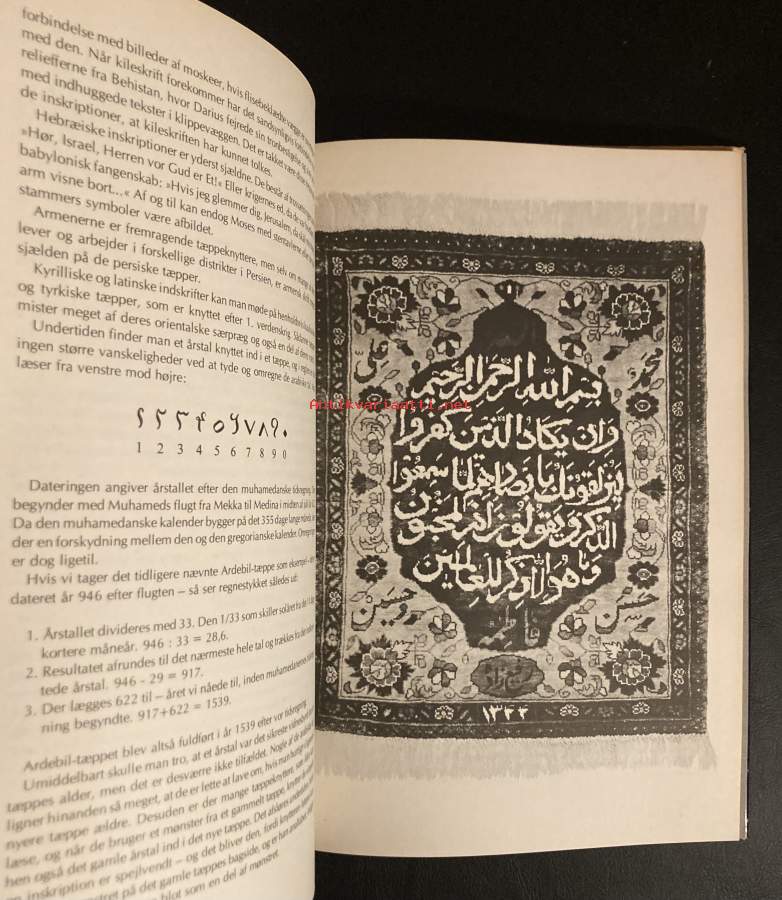 forbindelse med billeder af moskeer, hvis flisebeklædte vægge
med den. Når kileskrift forekommer har det sandsynligvis
reliefferne fra Behistan, hvor Darius fejrede sin tronbestigelse
med indhuggede tekster i klippevæggen. Det er takket være disse
de inskriptioner, at kileskriften har kunnet tolkes.
Hebræiske inskriptioner er yderst sjældne. De består af
»Hør, Israel, Herren vor Gud er Et!« Eller krigernes ed, da de var
babylonisk fangenskab: »Hvis jeg glemmer dig, Jerusalem, da skal
arm visne bort...« Af og til kan endog Moses med stentavlerne eller
stammers symboler være afbildet.
Armenerne er fremragende tæppeknyttere, men selv om mange
lever og arbejder i forskellige distrikter i Persien, er armensk skrift
sjælden på de persiske tæpper.
Kyrilliske og latinske indskrifter kan man møde på henholdsvis
og tyrkiske tæpper, som er knyttet efter 1. verdenskrig. Sådanne
mister meget af deres orientalske særpræg og også en del af deres
Undertiden finder man et årstal knyttet ind i et tæppe, og
ingen større vanskeligheder ved at tyde og omregne de arabiske tal.
læser fra venstre mod højre:
۱ ۲ ۳ ۴ ۵ ۶ ۷ ۸ ۹ ۰
1 2 3 4 5 6 7 8 9 0
Dateringen angiver årstallet efter den muhamedanske tidsregning.
begynder med Muhameds flugt fra Mekka til Medina i midten af juli
Da den muhamedanske kalender bygger på det 355 dage lange måneår,
der en forskydning mellem den og den gregorianske kalender.
er dog ligetil.
Hvis vi tager det tidligere nævnte Ardebil-tæppe som eksempel –
dateret år 946 efter flugten – så ser regnestykket således ud:
1. Årstallet divideres med 33. Den 1/33 som skiller solåret fra det
kortere måneår. 946 : 33 = 28,6.
2. Resultatet afrundes til det nærmeste hele tal og trækkes fra det
tede årstal. 946 - 29 = 917.
3. Der lægges 622 til – året vi nåede til, inden muhamedanernes
ning begyndte. 917+622 = 1539.
Ardebil-tæppet blev altså fuldført i år 1539 efter vor tidsregning.
Umiddelbart skulle man tro, at et årstal var det sikreste vidnesbyrd
tæppes alder, men det er desværre ikke tilfældet. Nogle af de arabiske
ligner hinanden så meget, at de er lette at lave om, hvis man
nyere tæppe ældre. Desuden er der mange tæppeknyttere, som
læse, og når de bruger et mønster fra et gammelt tæppe, knytter de
hen også det gamle årstal ind i det nye tæppe. Det afsløres
inskription er spejlvendt – og det bliver den, fordi knytteren
på det gamle tæppes bagside, og er han analfabet
blot som en del af mønstret.
محمد
علی
بسم الله الرحمن الرحیم
وان یکاد الذین کفروا
لیزلقونک بابصارهم لما سمعوا
الذکر و یقولون انه لمجنون
و ما هو الا ذکر للعالمین
فاطمه
حسن
حسین
۱۳۴۴
Antikvariaatti.net